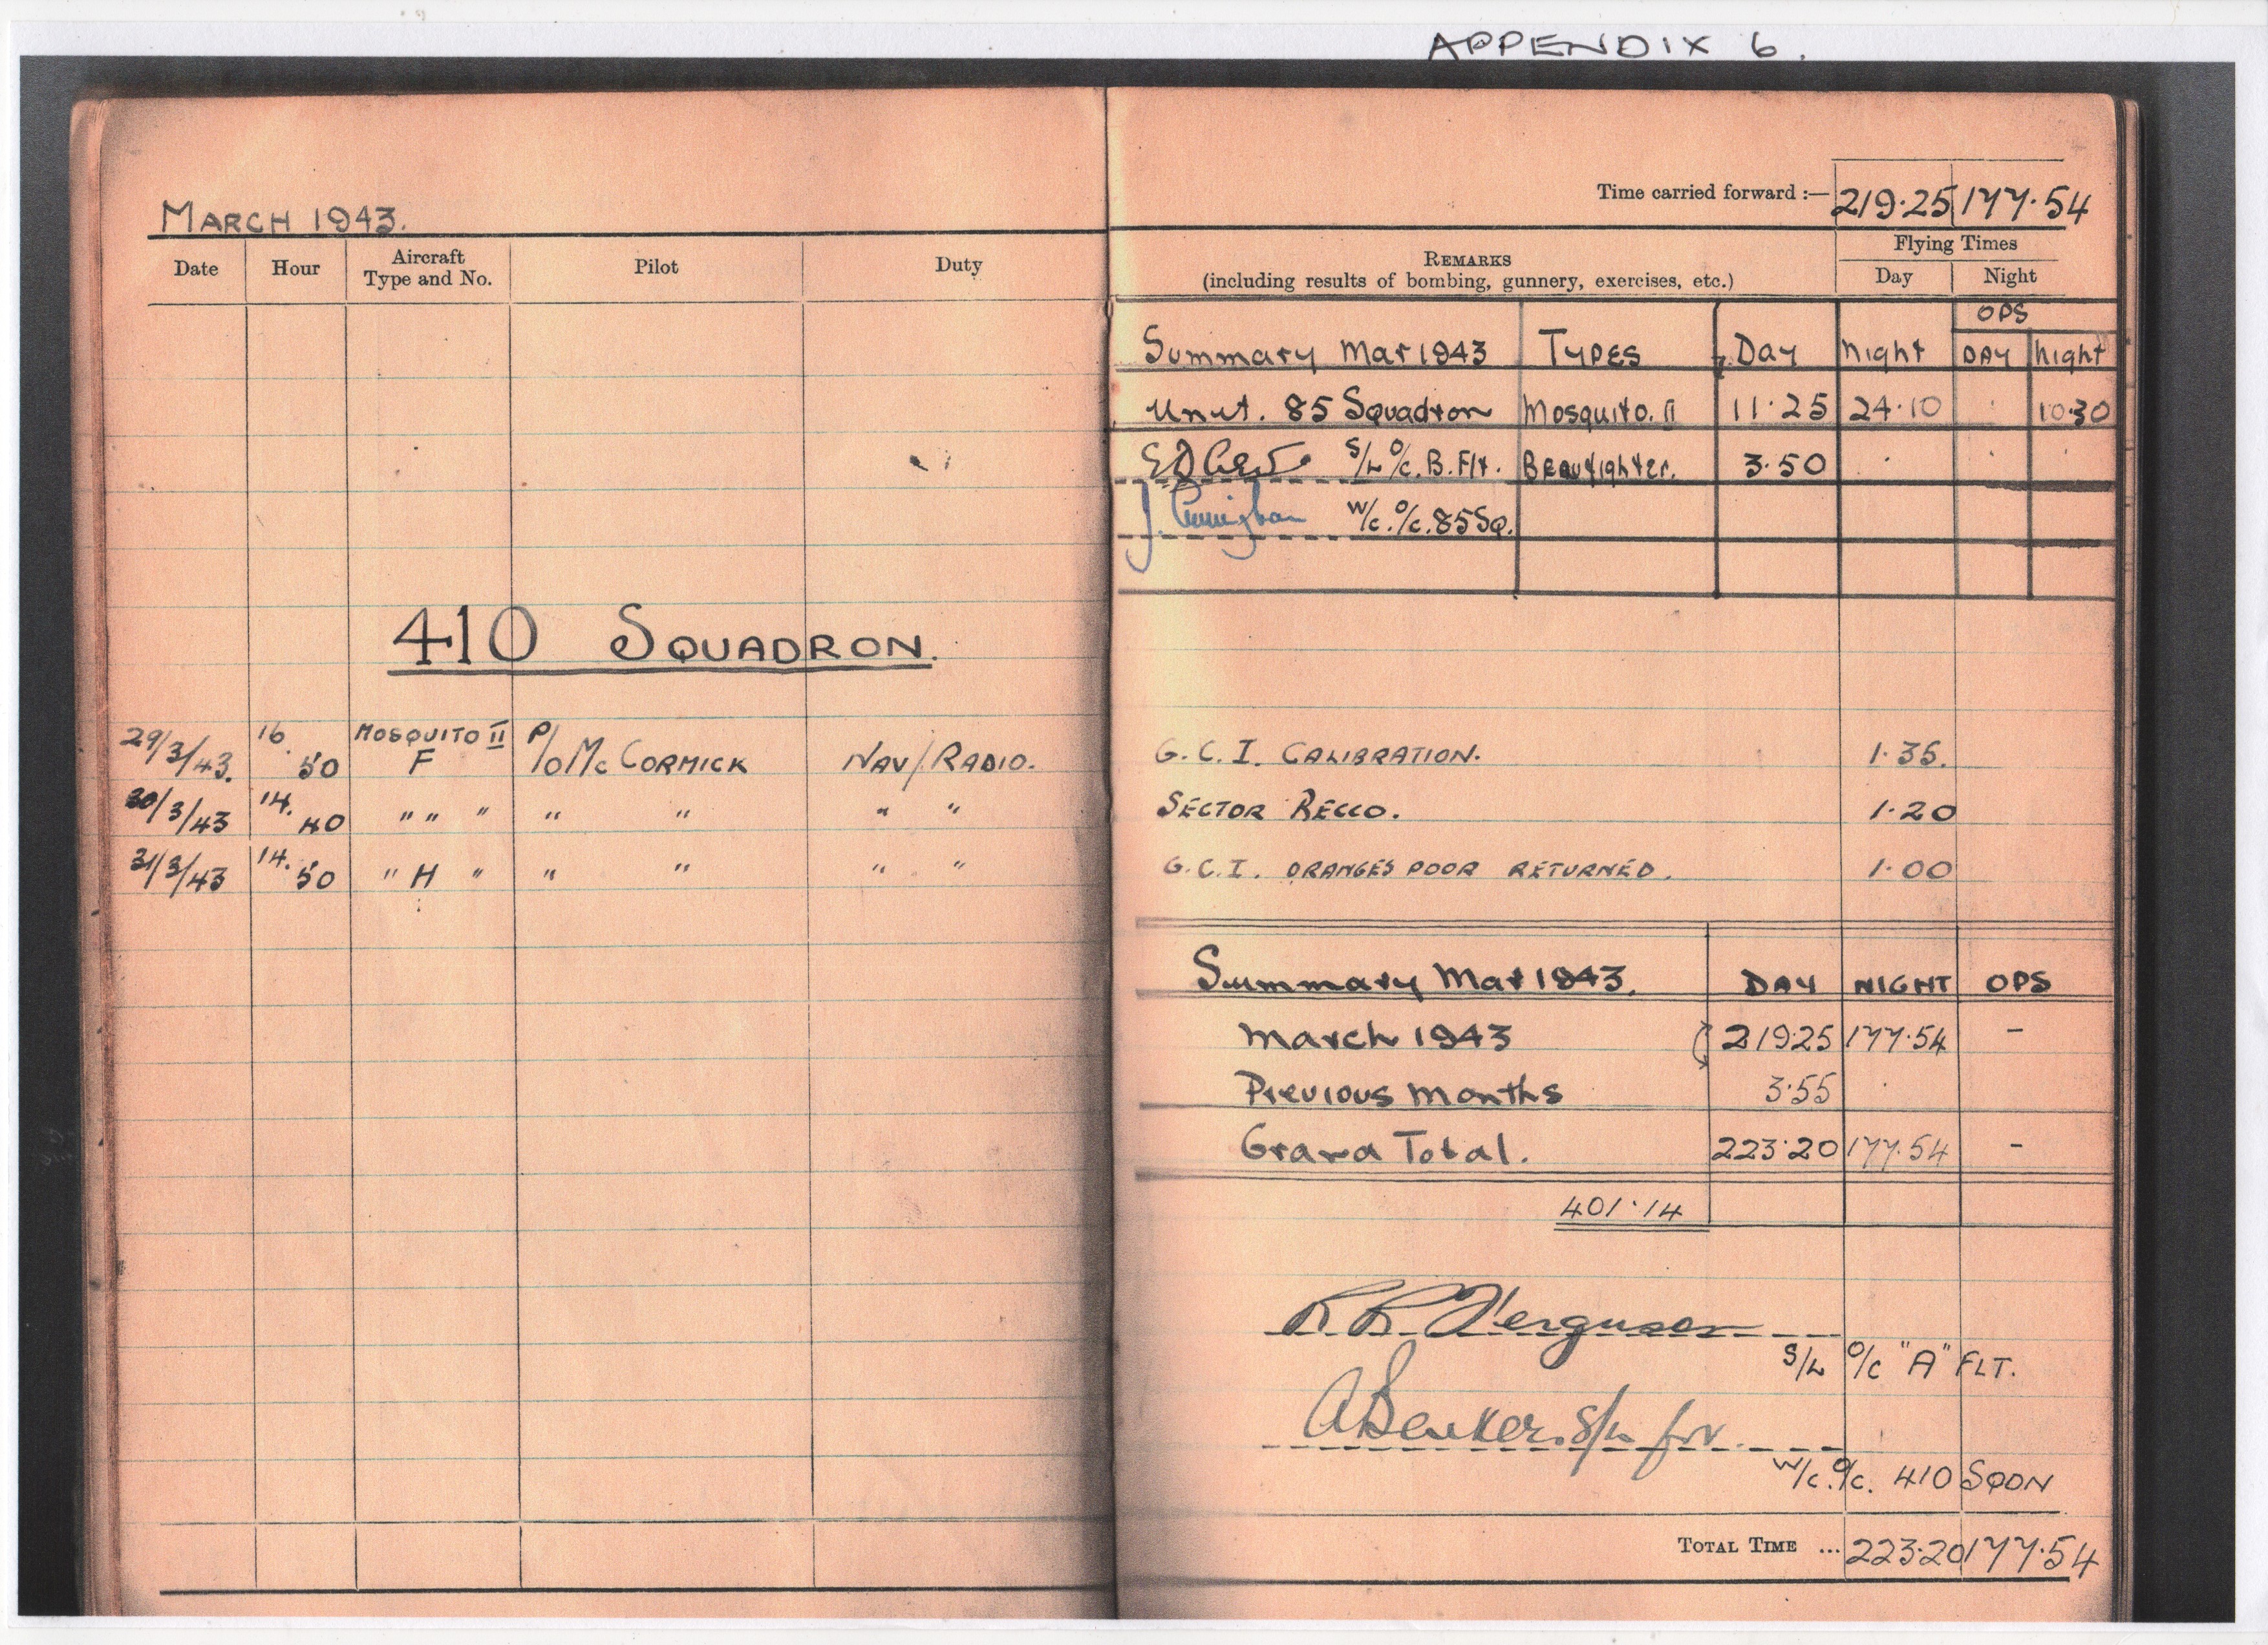 APPENDIX 6.
MARCH 1943.
Date Hour Aircraft Type and No. Pilot Duty
410 SQUADRON.
29/3/43. 16.50 MOSQUITO II F P/O Mc CORMICK NAV/RADIO.
30/3/43 14.40 " " " " " " "
31/3/43 14.50 " H " " " " "
Time carried forward :— 219.25 177.54
REMARKS
(including results of bombing, gunnery, exercises, etc.)
Flying Times
Day Night
OPS
Summary Mar 1943 TYPES Day Night DAY Night
Unit. 85 Squadron Mosquito. II 11.25 24.10 . 10.30
S/L O/c. B. Flt. Beaufighter. 3.50 . . .
J. Cunningham W/c. O/c. 85 Sq.
G.C.I. CALIBRATION. 1.35.
SECTOR RECCO. 1.20
G.C.I. ORANGES POOR RETURNED. 1.00
Summary Mar 1943. DAY NIGHT OPS
March 1943 219.25 177.54 -
Previous months 3.55 .
Grand Total. 223.20 177.54 -
401.14
R R Ferguson
S/L O/c "A" FLT.
S/L for
W/c. O/c. 410 SQDN
TOTAL TIME ... 223.20 177.54